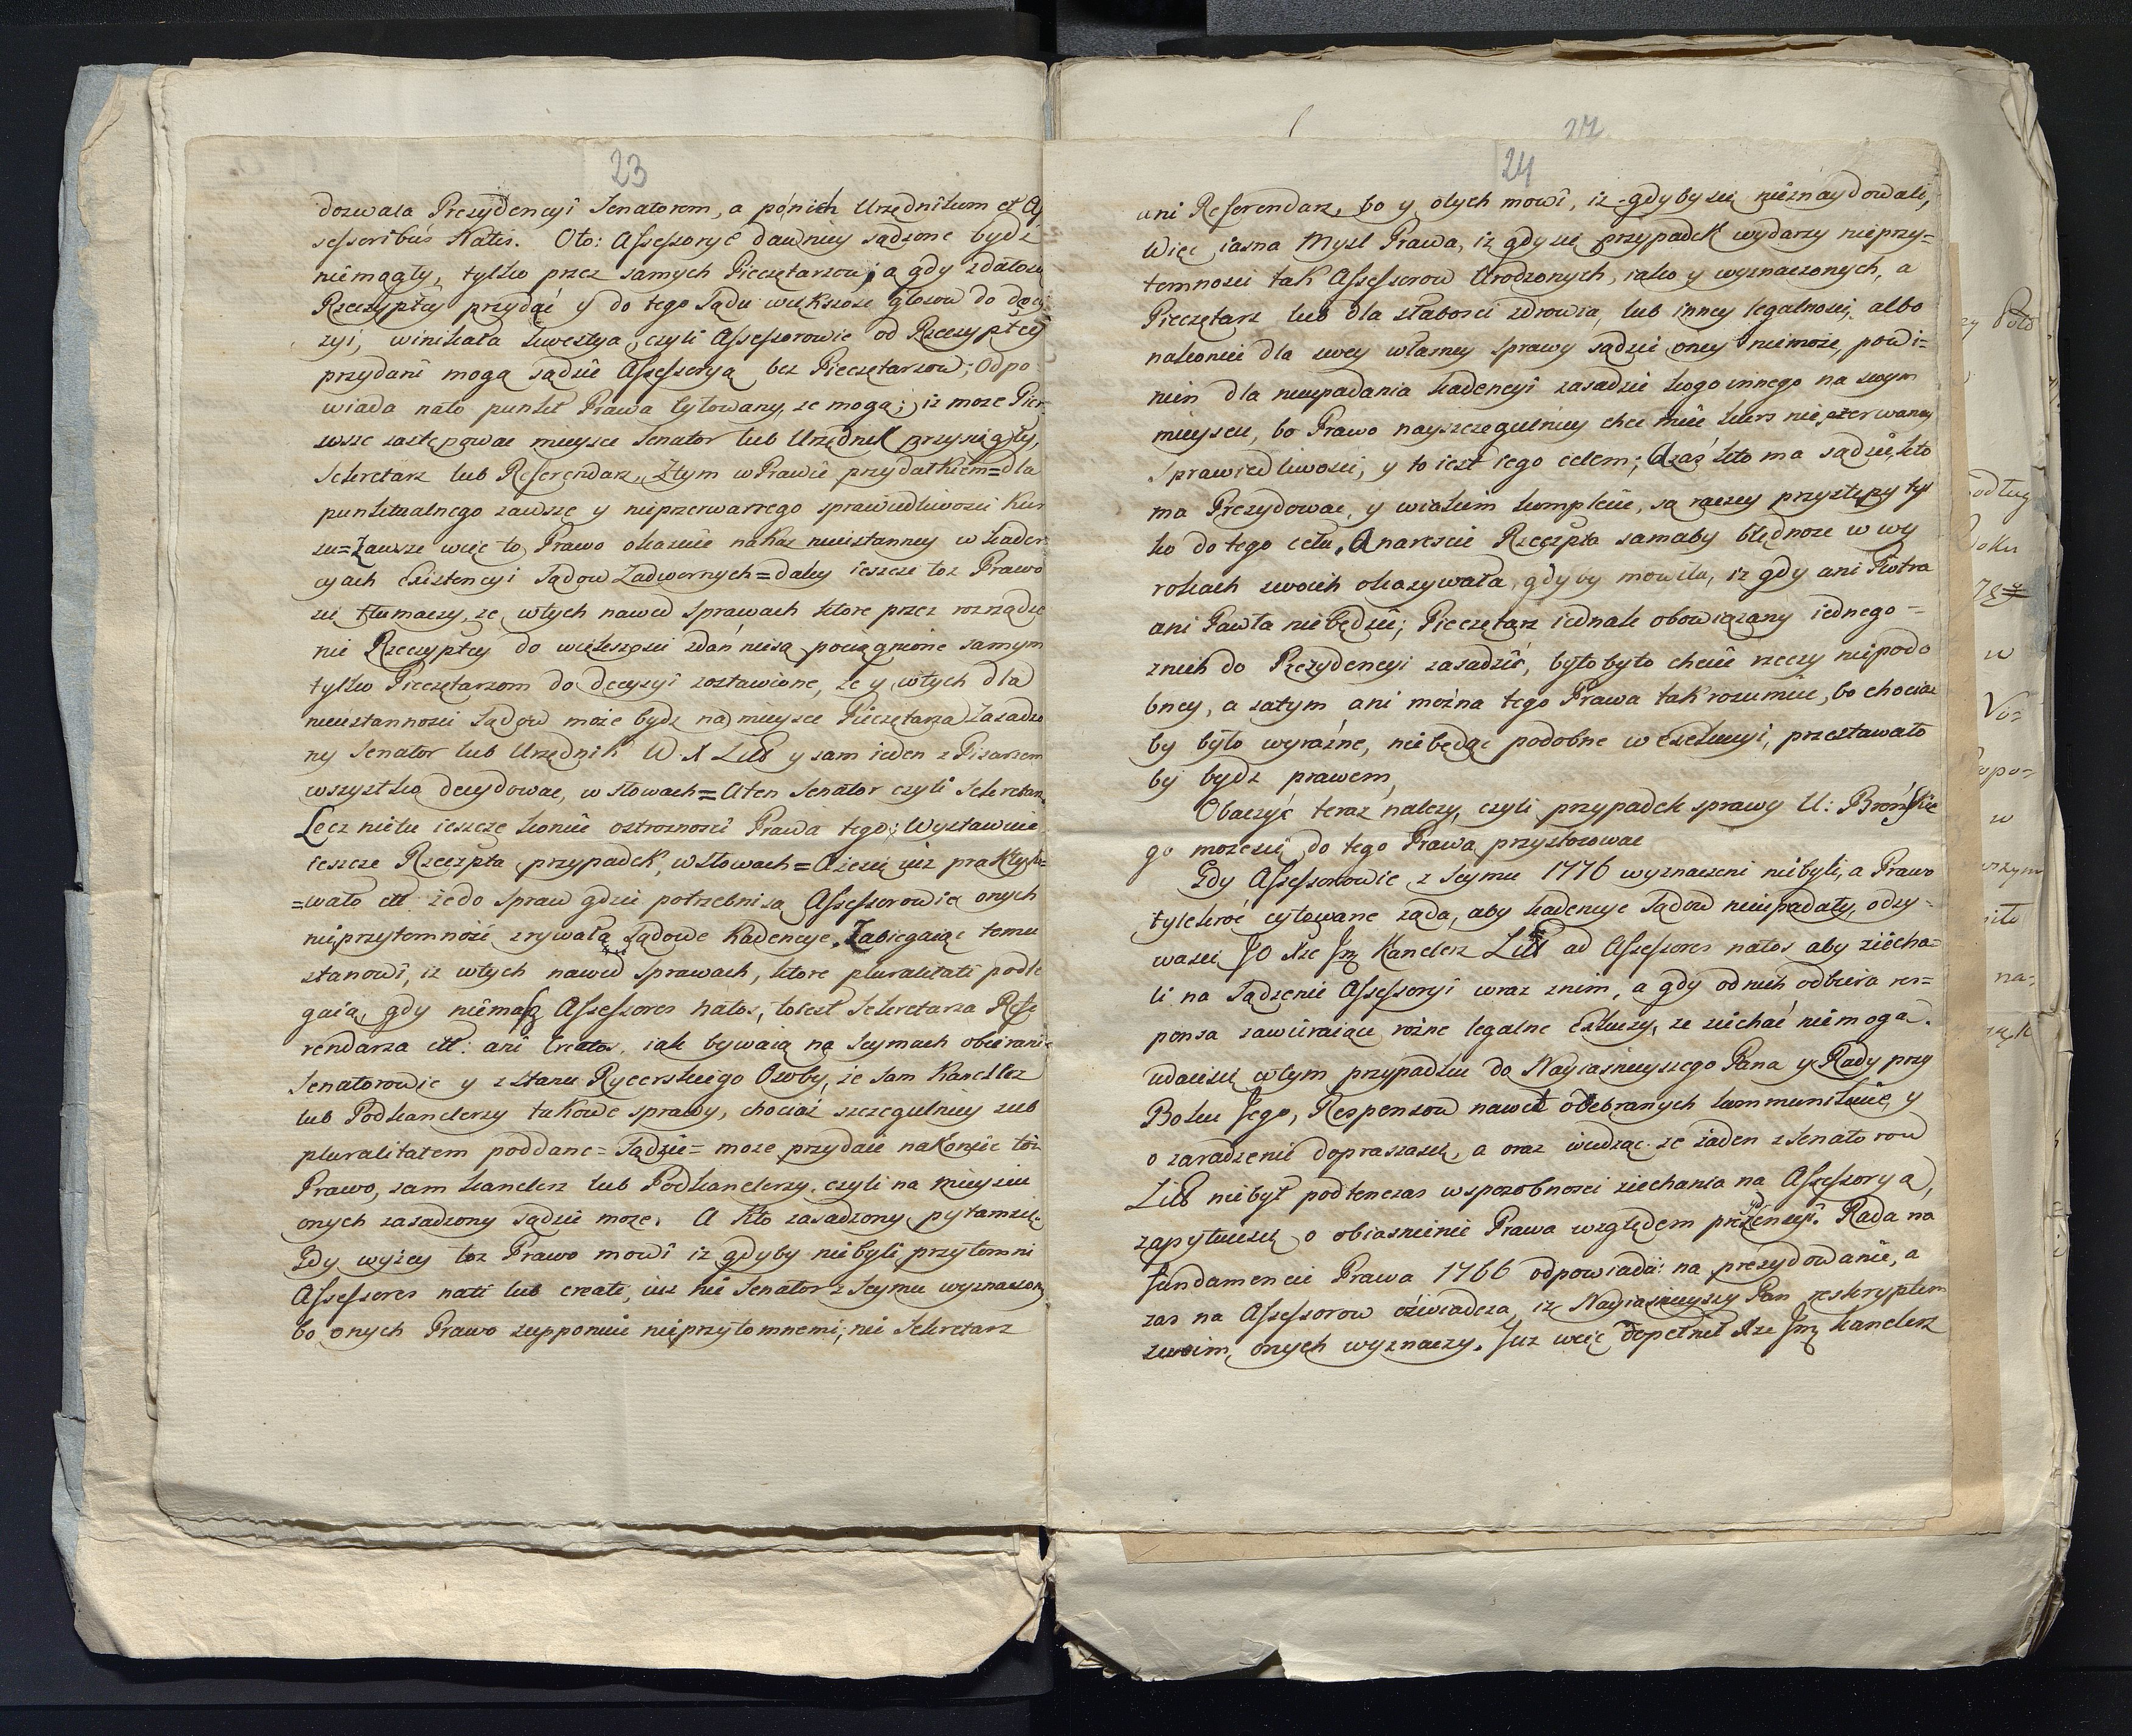 23
dozwala Prezydencyi Senatorom, a pónich Urzędnikom et As
sessoribus Natis. Oto: Assessorye dawniey sądzone bydź
niemogły, tylko przez samych Pieczętarzow; a gdy zdało się
Rzeczypltey przydać y do tego Sądu większosc głosow do decy
zyi, winikała kwestya, czyli Assessorowie od Rzeczypltey
przydani mogą sądzić Assessoryą bez Pieczętarzow; Odpo
wiada nato punkt Prawa cytowany, ze mogą; iz moze Pier
wsze zastępować mieysce Senator lub Urzędnik przysięgły,
Sekretarz lub Referendarz, Ztym w Prawie przydatkiem=dla
punktualnego zawsze y nieprzerwanego sprawiedliwosci Kur
su=Zawsze więc to Prawo okazuie nakaz nieustanney w kaden
cyach Existencyi Sądow Zadwornych=daley ieszcze toz Prawo
się tłumaczy, ze wtych nawed Sprawach ktore przez rozrządze
nie Rzeczypltey do większosci zdań niesą pociągnione samym
tylko Pieczętarzom do decyzyi zostawione, ze y wtych dla
nieustannosci Sądow może bydz na mieysce Pieczętarza Zasadzo
ny Senator lub Urzędnik W. X Litt y sam ieden z Pisarzem
wszystko decydowac, w słowach=Aten Senator czyli Sekretarz.
Lecz nietu ieszcze koniec ostrożnosci Prawa tego; Wystawuie
ieszcze Rzeczplta przypadek, w słowach=Aiesię iuz praktyko=
=wało ett: żedo Spraw gdzie potrzebni są Assessorowie onych
nieprzytomność zrywała Sądowe Kadencye, Zabiegaiąc temu
stanowi, iz wtych nawed Sprawach, ktore pluralitati podle
gaią, gdy niemasz Assessores natos, toiest Sekretarza Refe
rendarza ett: ani Creatos, iak bywaią na Seymach obierani
Senatorowie y z Stanu Rycerskiego Osoby, że Sam Kanclerz
lub Podkanclerzy takowe sprawy, chociaż szczegulniey sub
pluralitatem poddane=Sądzić=moze przydaie nakoniec toż
Prawo, sam kanclerz lub Podkanclerzy, czyli na mieyscu
onych zasadzony sądzic moze. A Kto zasadzony pytamsię
Gdy wyżey toz Prawo mowi iz gdyby niebyli przytomni
Assessores nati lub creati, iuz nie Senator z Seymu wyznaczony
bo onych Prawo supponuie nieprzytomnemi; nie Sekretarz
27
24
ani Referendarz, bo y otych mowi, iz gdyby się nieznaydowali,
Więc iasna Mysl Prawa, iz gdy się przypadek wydarzy nieprzy=
tomnosci tak Assessorow Urodzonych, iako y wyznaczonych, a
Pieczętarz lub dla słabosci zdrowia, lub inney legalnosci, albo
nakoniec dla swey własney Sprawy sądzić oney niemoże, powi=
nien dla nieupadania kadencyi zasadzic kogo innego na swym
mieyscu, bo Prawo nayszczegulniey chce miec kurs nieprzerwaney
Sprawiedliwosci, y to iest iego celem; Azaś kto ma sądzić, kto
ma Prezydowac, y wiakim komplecie, są raczey przystępy tyl
ko do tego celu. Anareszcie Rzeczplta samaby błędnosc w wy
rokach swoich okazywała, gdyby mowiła, iz gdy ani Piotra
ani Pawła niebędzie; Pieczętarz iednak obowiązany iednego=
znich do Prezydencyi zasadzić, byłoby to chcieć rzeczy niepodo
bney, a zatym ani można tego Prawa tak rozumieć, bo chociaz
by było wyraźne, niebędąc podobne w Exekucyi, przestawało
by bydz prawem,
Obaczyć teraz należy, czyli przypadek sprawy U: Brońskie
go możesię do tego Prawa przystosowac
Gdy Assessorowie z Seymu 1776 wyznaczeni niebyli, a Prawo
tylekroć cytowane ząda, aby kadencye Sądow nieupadały, odzy=
wasię JO Xże Jmć Kanclerz Litt ad Assessores natos aby ziecha=
li na Sądzenie Assessoryi wraz znim, a gdy odnich odbiera res=
ponsa zawieraiące rożne legalne Exkuzy, ze ziechać niemogą.
udaiesię wtym przypadku do Nayiasnieyszego Pana y Rady przy
Boku Jego, Responsow nawet odebranych kommunikuie, y
o zaradzenie dopraszasię, a oraz wiedząc ze żaden z Senatorow
Litt niebył podtenczas w sposobnosci ziechania na Assessoryą,
zapytuiesię o obiasnienie Prawa względem prezydencyi. Rada na
fundamencie Prawa 1766 odpowiada: na prezydowanie, a
zas na Assessorow oświadcza, iz Nayiasnieyszy Pan reskryptem
swoim onych wyznaczy. Juz więc dopełnił Xze Jmć kanclerz